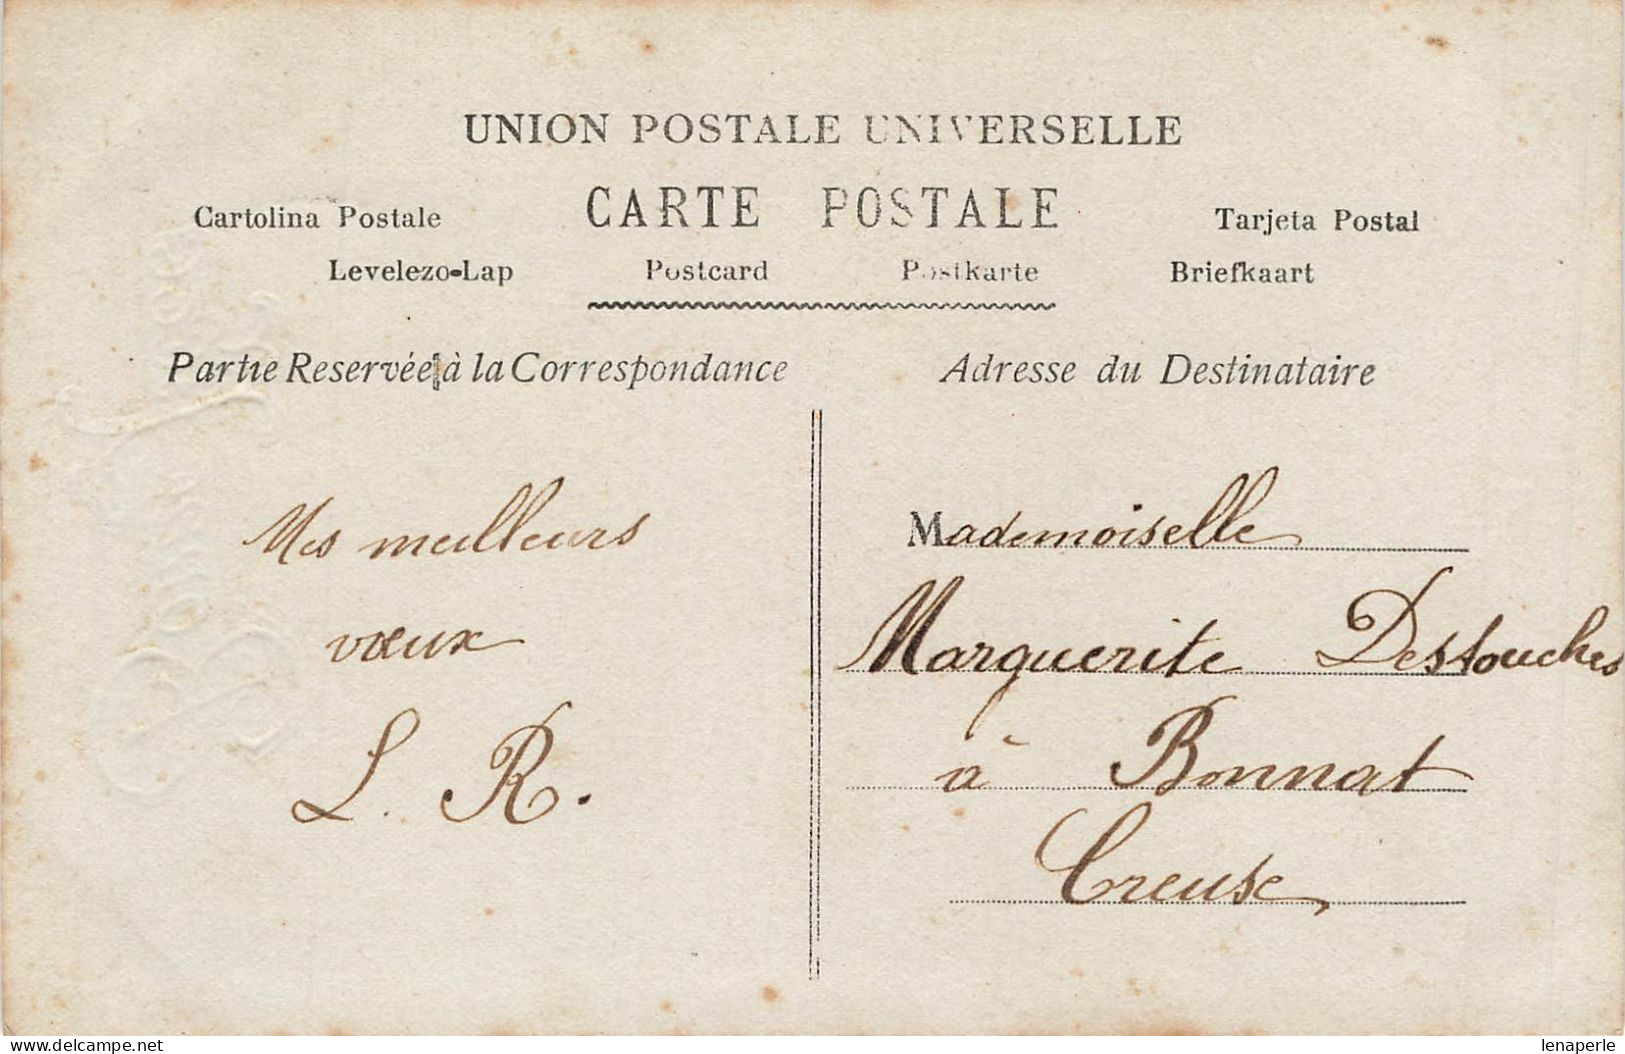 UNION POSTALE UNIVERSELLE
CARTE POSTALE
Cartolina Postale
Tarjeta Postal
Levelezo-Lap Postcard Postkarte Briefkaart
Partie Reservée à la Correspondance
Adresse du Destinataire
Mes meilleurs
vœux
L. R.
Mademoiselle
Marguerite Destouches
à Bonnat
Creuse,
delcampe.net
lenaperle